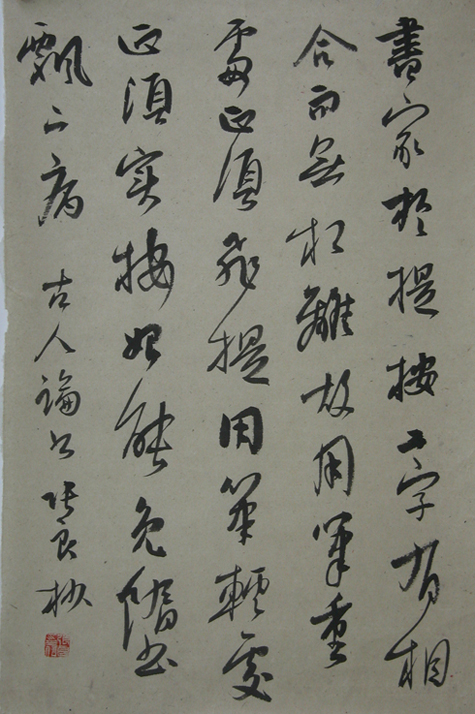 書家於提按二字有相
合而無相離故用筆重
處正須飛提用筆輕處
正須实按始能免墮
飄二病 古人論书 张良抄